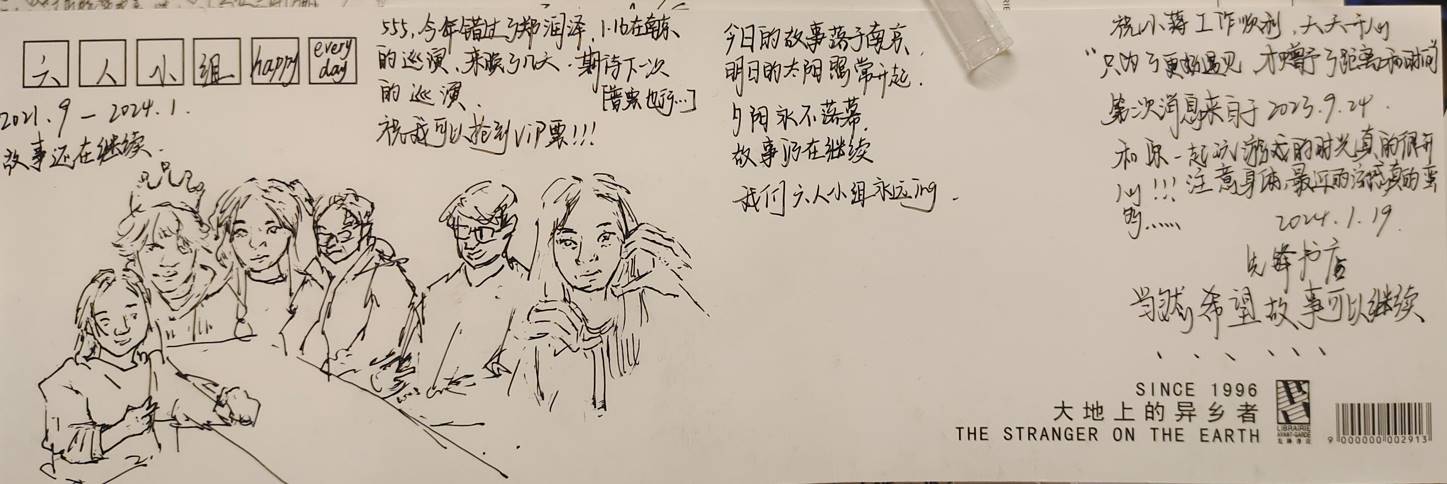 六 人 小 组 happy every day
2021.9 – 2024.1.
故事还在继续.
555,今年错过了郑润泽,1.16在南京
的巡演,来晚了几天.期待下一次
的巡演.
祝我可以抢到VIP票!!!
今日的故事落于南京.
明日的太阳照常升起.
夕阳永不落幕.
故事仍在继续
我们六人小组永远ing.
祝小蒋工作顺利,天天开心
"只为了更好遇见,才赠予了距离和时间"
第一次消息来自于2023.9.24.
和你一起玩游戏的时光真的很开
心!!!注意身体,最近的流感真的蛮
2024.1.19.
先锋书店
当然希望故事可以继续
、、、、、、
SINCE 1996
大地上的异乡者
THE STRANGER ON THE EARTH
LIBRAIRIE
AVANT-GARDE
先锋书店
9 000000 002913